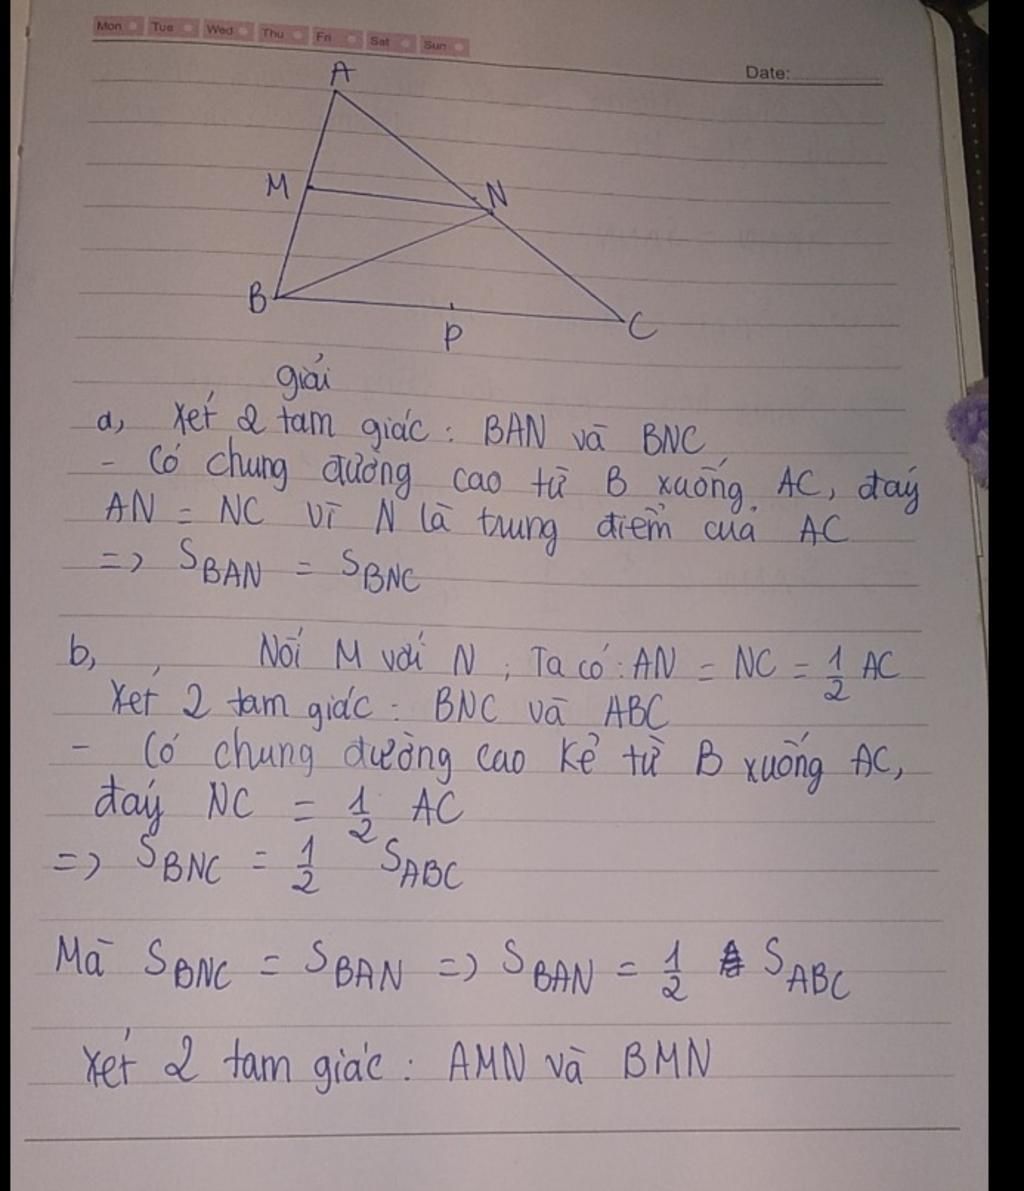 Mon Tue Wed Thu Fri Sat Sun
Date:
A
M
N
B
P
C
giải
a, Xét 2 tam giác : BAN và BNC
- Có chung đường cao từ B xuống AC, đáy
AN = NC vì N là trung điểm của AC
=> S_BAN = S_BNC
b, Nối M với N ; Ta có : AN = NC = 1/2 AC
Xét 2 tam giác : BNC và ABC
- Có chung đường cao kẻ từ B xuống AC,
đáy NC = 1/2 AC
=> S_BNC = 1/2 S_ABC
Mà S_BNC = S_BAN => S_BAN = 1/2 S_ABC
Xét 2 tam giác : AMN và BMN